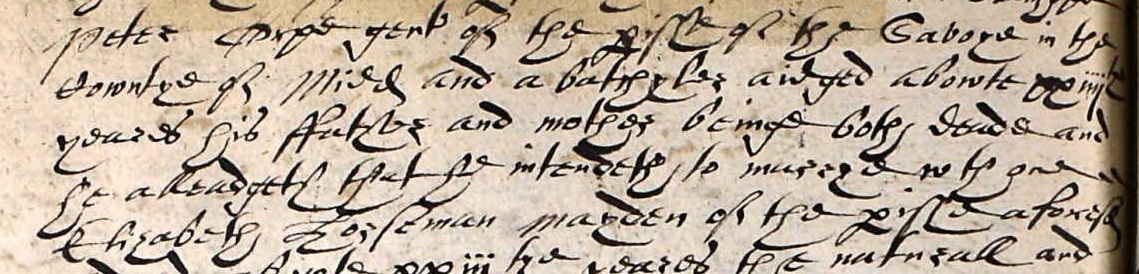 Peter gent of the pisse of the Savoye in the
Cowntye of Midd and a batchyler aidged abowte xxiiij
yeares his ffather and mother beinge both deade and
he alleadgeth that he intendeth to marrye wth one
Elizabeth Horseman mayden of the pisse aforesd
xxiij tye yeares the naturall and